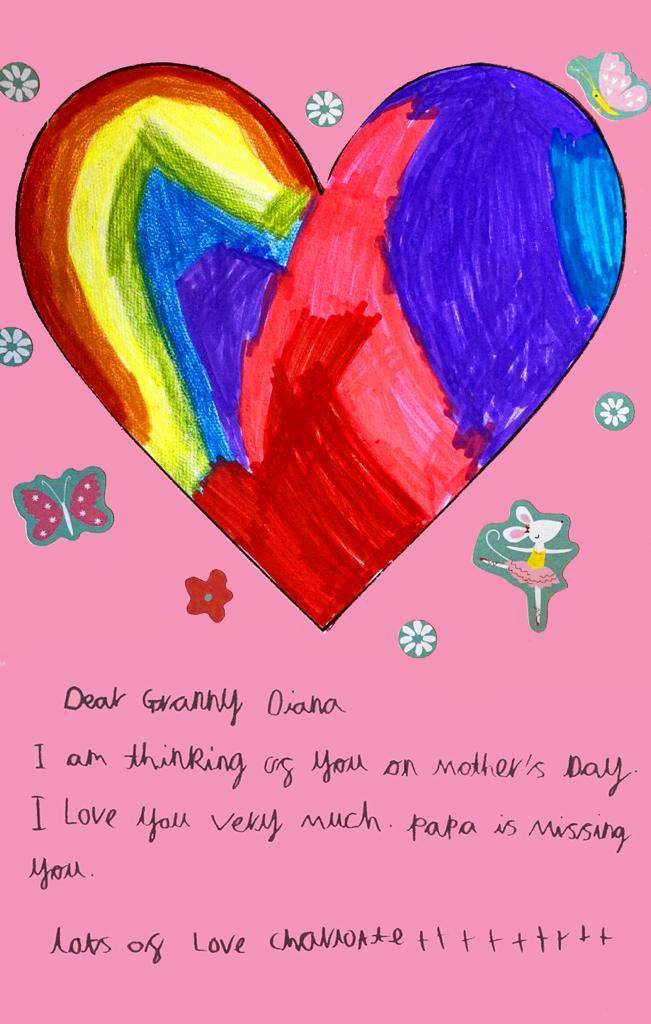 Dear Granny Diana
I am thinking of you on mother's Day.
I Love you very much. papa is missing
you.
lots of Love charlotte +++++++++